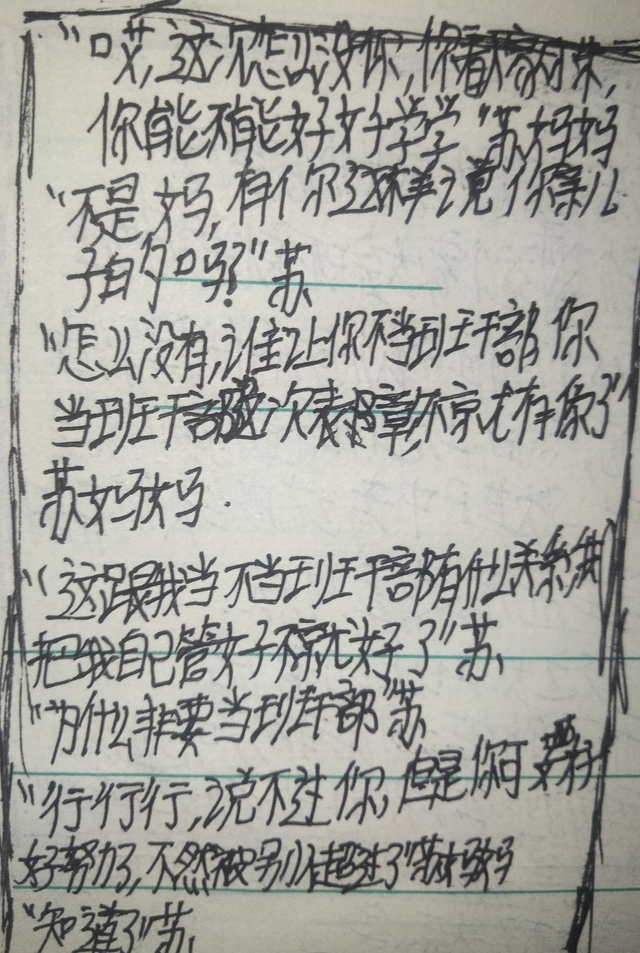 "哎,这次怎么没你,你看
你能不能好好学学"苏妈妈
"不是,妈,有你这样说你亲儿
子的吗?"苏
"怎么没有,谁让你不当班干部 你
当班干部这次表彰不就有你了"
苏妈妈.
"这跟我当不当班干部有什么关系我
把我自己管好不就好了"苏
"为什么非要当班干部"苏
"行行行,说不过你,但是你可要好
好努力了,不然被别人超过了"苏妈妈
"知道了"苏